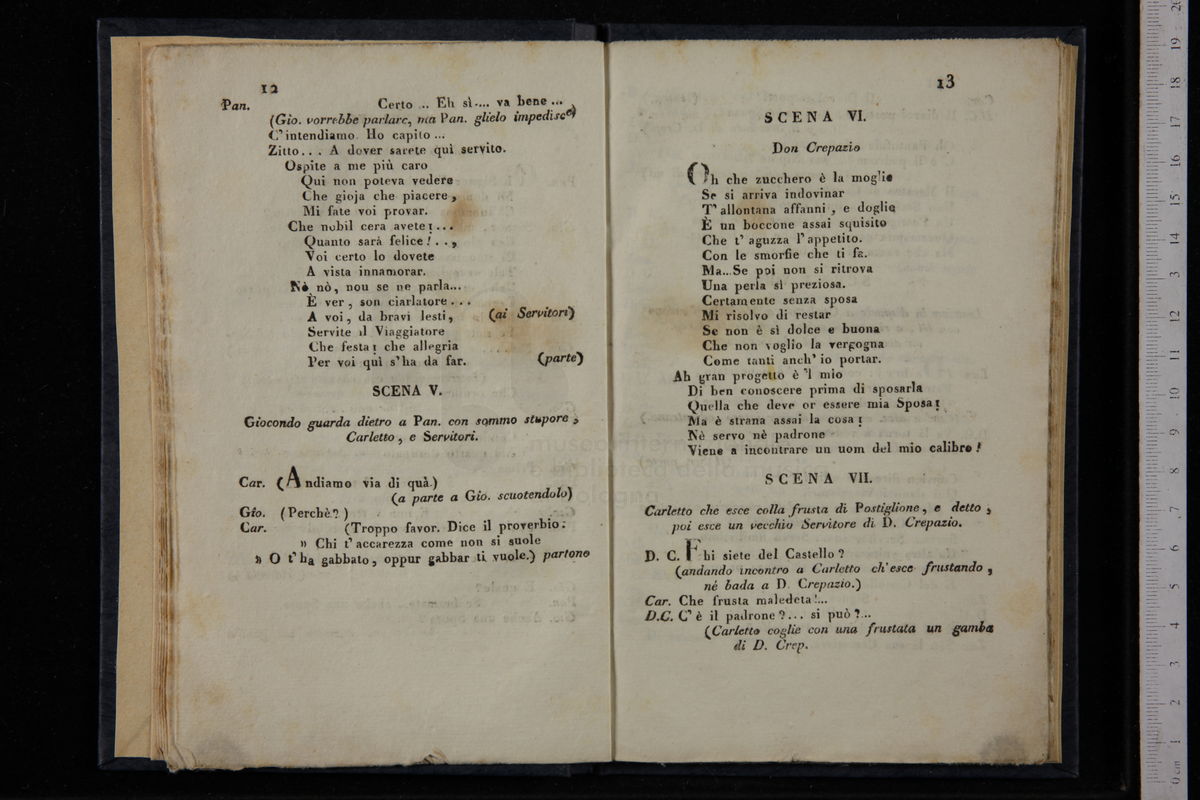 12
Pan. Certo ... Eh sì.... va bene ...
(Gio. vorrebbe parlare, ma Pan. glielo impedisce)
C'intendiamo. Ho capito ...
Zitto... A dover sarete quì servito.
Ospite a me più caro
Qui non poteva vedere
Che gioja che piacere,
Mi fate voi provar.
Che nobil cera avete!...
Quanto sarà felice!..,
Voi certo lo dovete
A vista innamorar.
Nò nò, nou se ne parla...
È ver, son ciarlatore...
A voi, da bravi lesti, (ai Servitori)
Servite il Viaggiatore
Che festa! che allegria
Per voi quì s'ha da far. (parte)
SCENA V.
Giocondo guarda dietro a Pan. con sommo stupore,
Carletto, e Servitori.
Car. (Andiamo via di quà.)
(a parte a Gio. scuotendolo)
Gio. (Perchè?)
Car. (Troppo favor. Dice il proverbio:
» Chi t'accarezza come non si suole
» O t'ha gabbato, oppur gabbar ti vuole.) partono
13
SCENA VI.
Don Crepazio
Oh che zucchero è la moglie
Se si arriva indovinar
T'allontana affanni, e doglie
È un boccone assai squisito
Che t'aguzza l'appetito.
Con le smorfie che ti fa.
Ma...Se poi non si ritrova
Una perla sì preziosa.
Certamente senza sposa
Mi risolvo di restar
Se non è sì dolce e buona
Che non voglio la vergogna
Come tanti anch'io portar.
Ah gran progetto è 'l mio
Di ben conoscere prima di sposarla
Quella che deve or essere mia Sposa!
Ma è strana assai la cosa!
Nè servo nè padrone
Viene a incontrare un uom del mio calibro!
SCENA VII.
Carletto che esce colla frusta di Postiglione, e detto,
poi esce un vecchio Servitore di D. Crepazio.
D. C. Ehi siete del Castello?
(andando incontro a Carletto ch'esce frustando,
né bada a D. Crepazio.)
Car. Che frusta maledeta!...
D.C. C'è il padrone?... si può?...
(Carletto coglie con una frustata un gamba
di D. Crep.